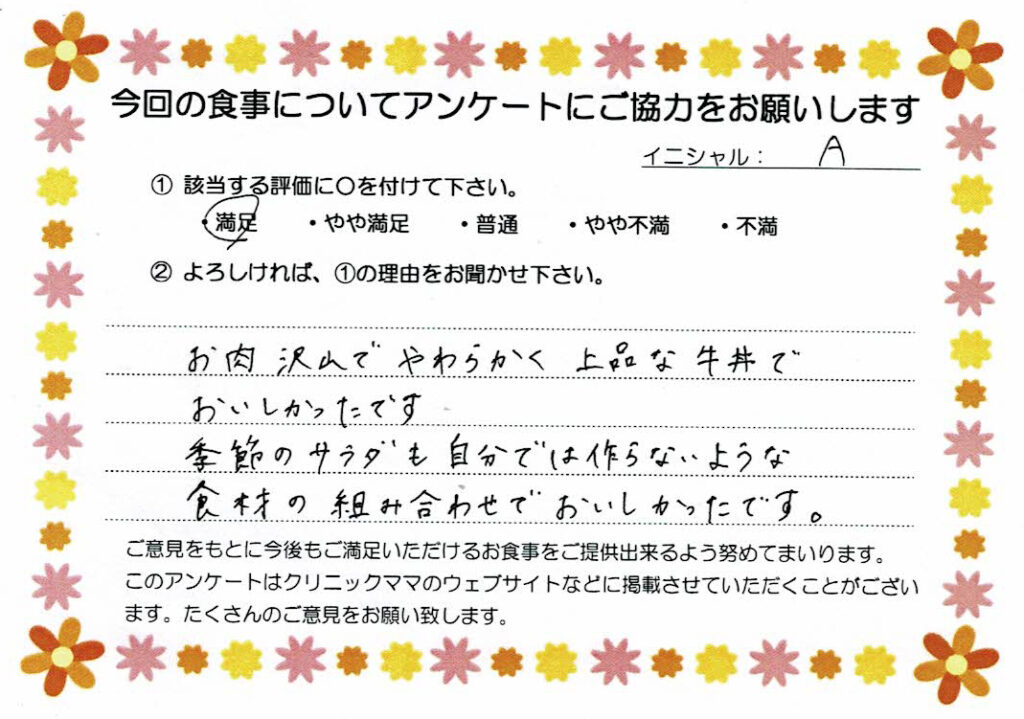 今回の食事についてアンケートにご協力をお願いします
イニシャル： A
① 該当する評価に〇を付けて下さい。
・満足 ・やや満足 ・普通 ・やや不満 ・不満
② よろしければ、①の理由をお聞かせ下さい。
お肉 沢山で やわらかく 上品な 牛丼で
おいしかったです
季節のサラダも 自分では作らないような
食材の 組み合わせで おいしかったです。
ご意見をもとに今後もご満足いただけるお食事をご提供出来るよう努めてまいります。
このアンケートはクリニックママのウェブサイトなどに掲載させていただくことがござい
ます。たくさんのご意見をお願い致します。